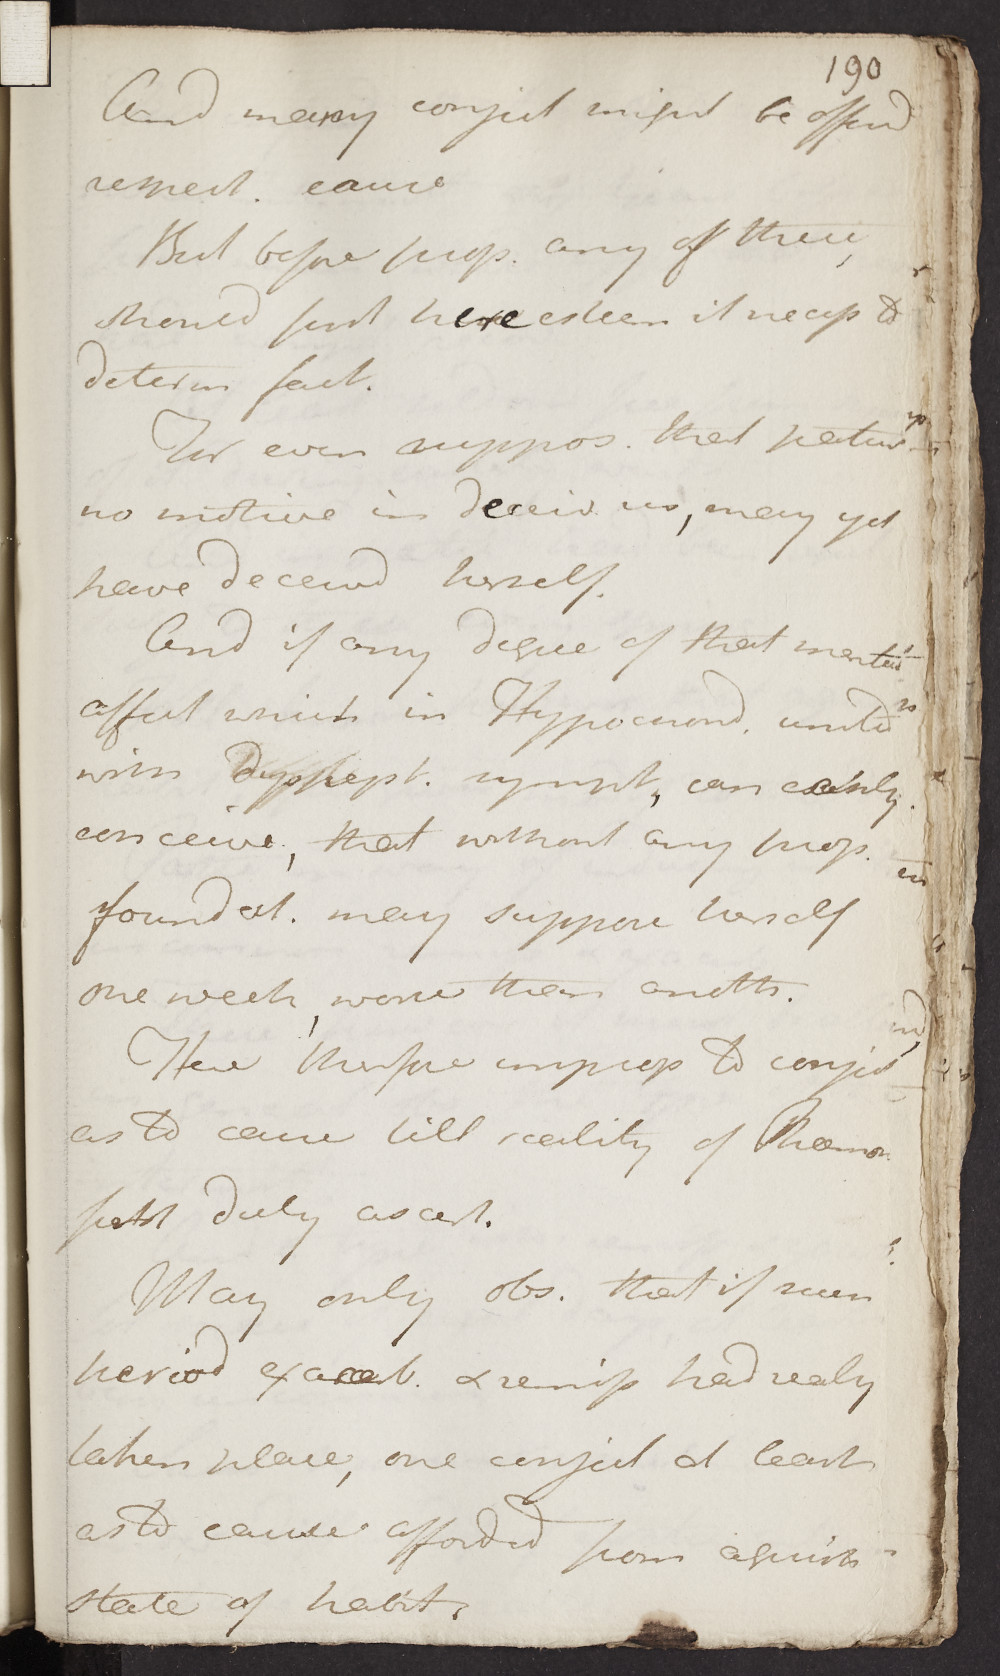 190
And many conject might be offerd
respect. cause
But before prop. any of these,
should first have esteem it necess to
determ fact.
For even suppos. that patient
no motive in deceiv. us, may yet
have deceivd herself.
And if any degree of that mental
affect which in Hypochond. united
with dyspept. sympt, can easily
conceive, that without any prop.
foundat. may suppose herself
one week, worse than anoth.
Here therfore improp to conject
as to cause till reality of Phænom
first duly ascert.
May only obs. that if such
period exacerb. & remiss had realy
taken place, one conject at least
as to cause afforded from aguish
state of habit.